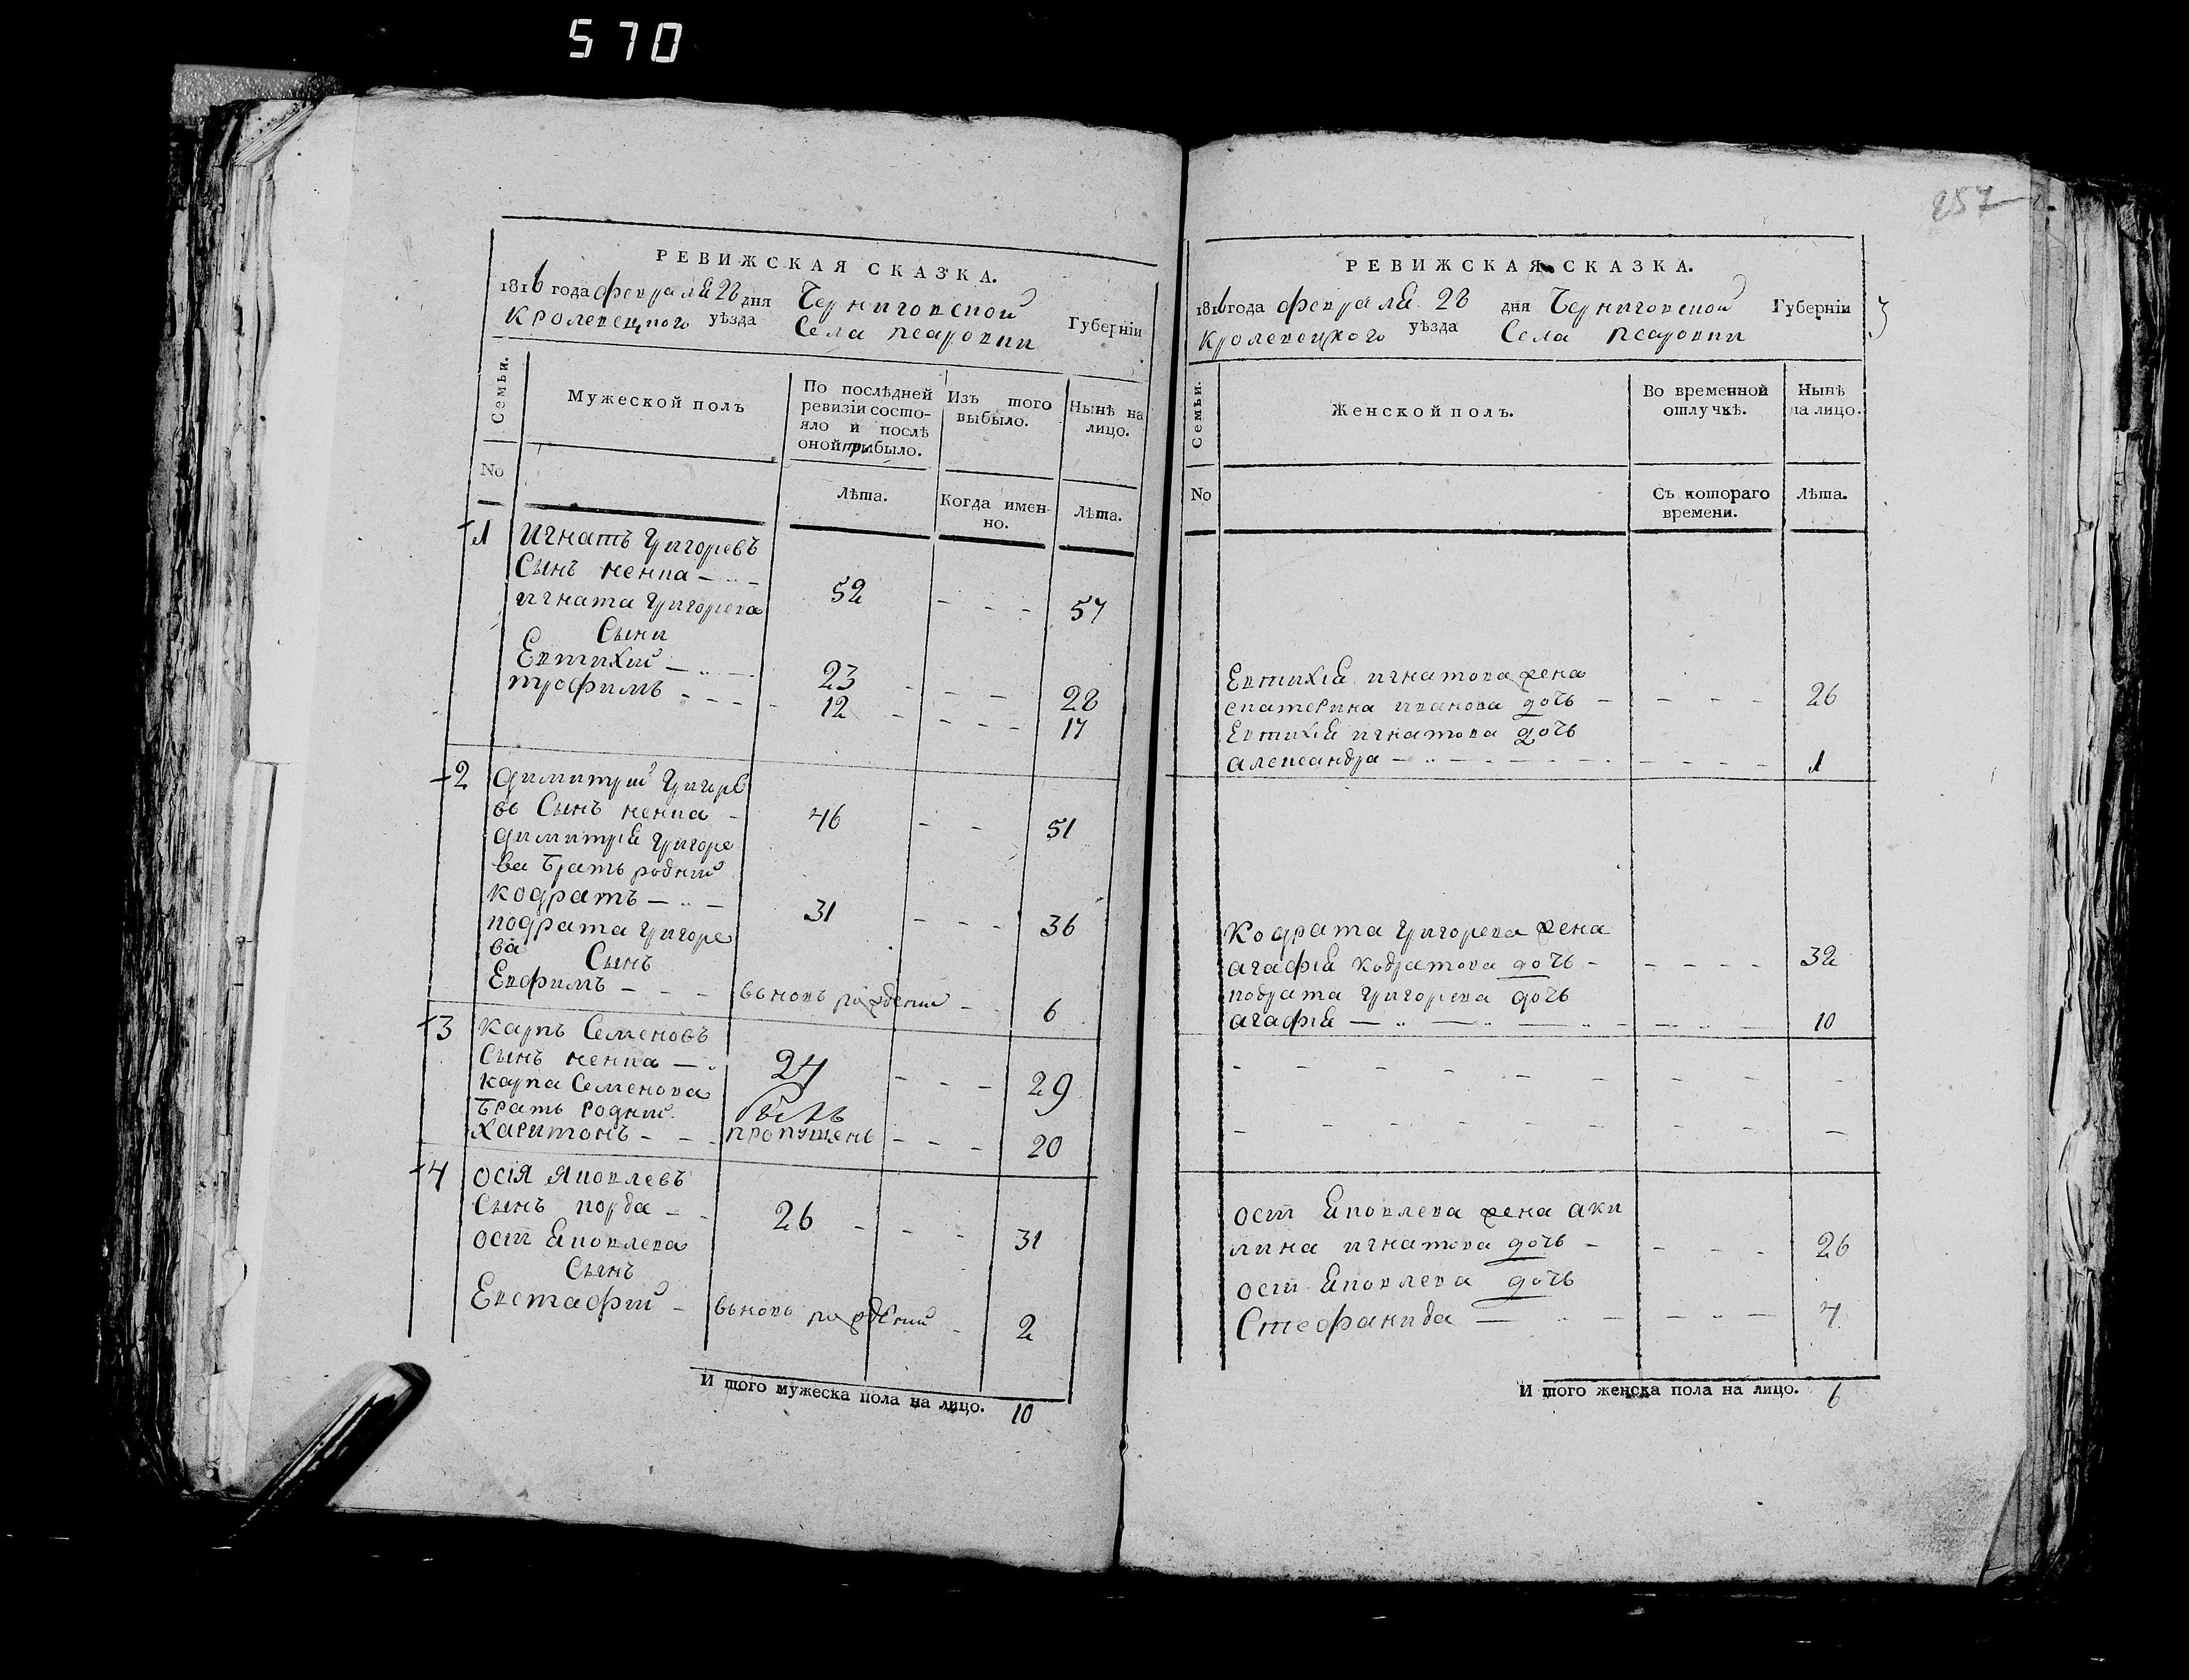 570
257
РЕВИЖСКАЯ СКАЗКА.
1816 года февраля 28 дня Черниговской Губернїи
Кролевецкого уѣзда Села псаровки
Семьи.
Мужеской полъ
По послѣдней
ревизїи состо-
яло и послѣ
оной прибыло.
Изъ того
выбыло.
Нынѣ на
лицо.
No
Лѣта.
Когда имен-
но.
Лѣта.
1 Игнатъ Григоревъ
Сынъ ненка 52 57
игната Григорева
Сыни
Евтихий 23 28
трофимъ 12 17
2 димитрий Григоре
въ Сынъ ненка 46 51
димитрия Григоре
ва братъ родний
кодратъ 31 36
кодрата Григоре
ва Сынъ
Евфимъ вьновь рожденний 6
3 карпъ Семеновъ
Сынъ ненка 24 29
карпа Семенова
братъ родний былъ
Харитонъ пропущенъ 20
4 осїя Яковлевъ
Сынъ корда 26 31
осїи Яковлева
Сынъ
Евстафий вьновь рожденний 2
И того мужеска пола на лицо. 10
РЕВИЖСКАЯ СКАЗКА.
1816 года февраля 28 дня Черниговской Губернїи
Кролевецкого уѣзда Села псаровки
Семьи.
Женской полъ.
Во временной
отлучкѣ.
Нынѣ
на лицо.
No
Съ котораго
времени.
Лѣта.
Евтихїя игнатова жена
екатерина иванова дочь 26
Евтихїя игнатова дочь
александра 1
Кодрата Григорева жена
агафїя кодратова дочь 32
кодрата Григорева дочь
агафїя 10
осїи Яковлева жена аки
лина игнатова дочь 26
осїи Яковлева дочь
Стефанида 4
И того женска пола на лицо. 6